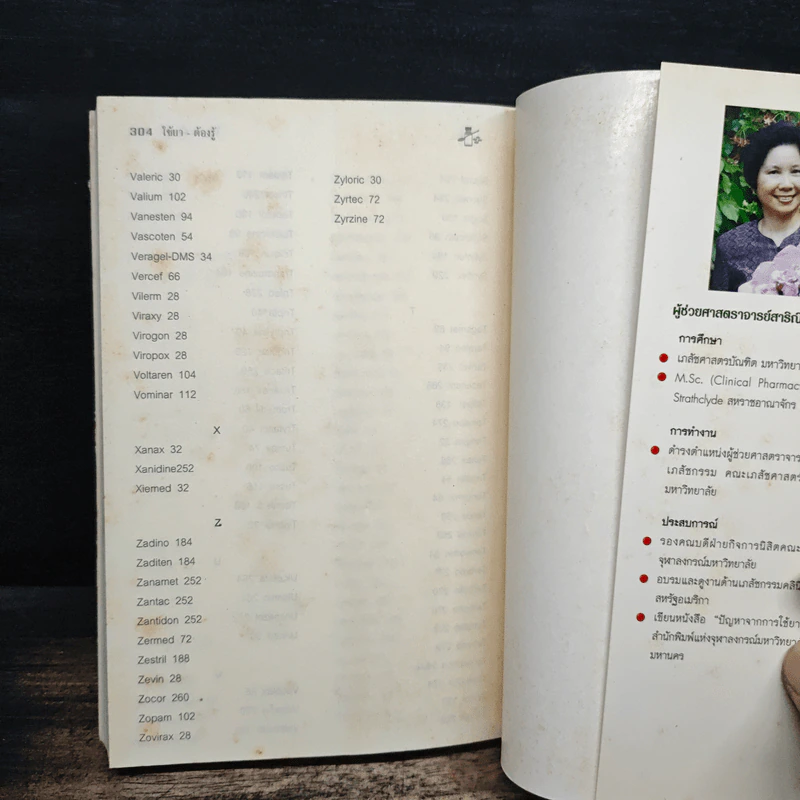 304 ใช้ยา - ต้องรู้
Valeric 30
Valium 102
Vanesten 94
Vascoten 54
Veragel-DMS 34
Vercef 66
Vilerm 28
Viraxy 28
Virogon 28
Viropox 28
Voltaren 104
Vominar 112
X
Xanax 32
Xanidine252
Xiemed 32
Z
Zadino 184
Zaditen 184
Zanamet 252
Zantac 252
Zantidon 252
Zermed 72
Zestril 188
Zevin 28
Zocor 260
Zopam 102
Zovirax 28
Zyloric 30
Zyrtec 72
Zyrzine 72
ผู้ช่วยศาสตราจารย์สาริณี
การศึกษา
เภสัชศาสตรบัณฑิต มหาวิทยา
M.Sc. (Clinical Pharmac
Strathclyde สหราชอาณาจักร
การทำงาน
ดำรงตำแหน่งผู้ช่วยศาสตราจาร
เภสัชกรรม คณะเภสัชศาสตร
มหาวิทยาลัย
ประสบการณ์
รองคณบดีฝ่ายกิจการนิสิตคณะ
จุฬาลงกรณ์มหาวิทยาลัย
อบรมและดูงานด้านเภสัชกรรมคลินิ
สหรัฐอเมริกา
เขียนหนังสือ "ปัญหาจากการใช้ยา
สำนักพิมพ์แห่งจุฬาลงกรณ์มหาวิทยา
มหานคร